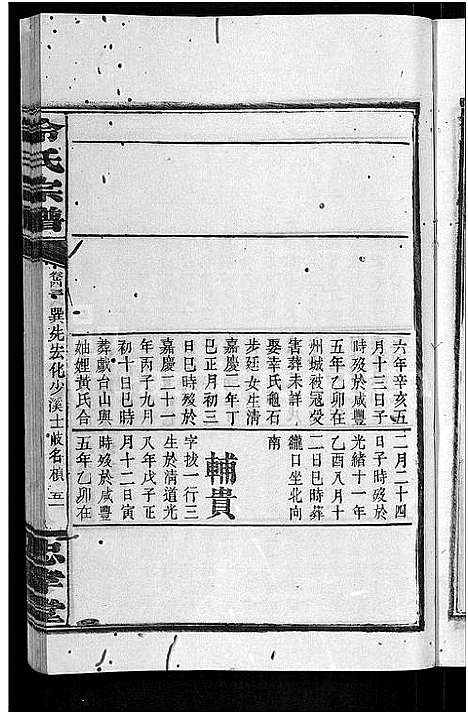 六年辛亥五
月十三日子
時歿於咸豐
五年乙卯在
州城被寇受
害葬未詳
娶幸氏龜石
步廷女生清
嘉慶二年丁
巳正月初三
日巳時歿於
嘉慶二十一
年丙子九月
初十日巳時
葬戲台山與
妯娌黃氏合
二月二十四
日子時歿於
光緒十一年
乙酉八月十
二日巳時葬
口坐北向
南
輔貴
字拔一行三
生於清道光
八年戊子正
月十二日寅
時歿於咸豐
五年乙卯在
冷氏宗譜
卷四 巽先宏化少溪士岐名楨 五一
忠孝堂